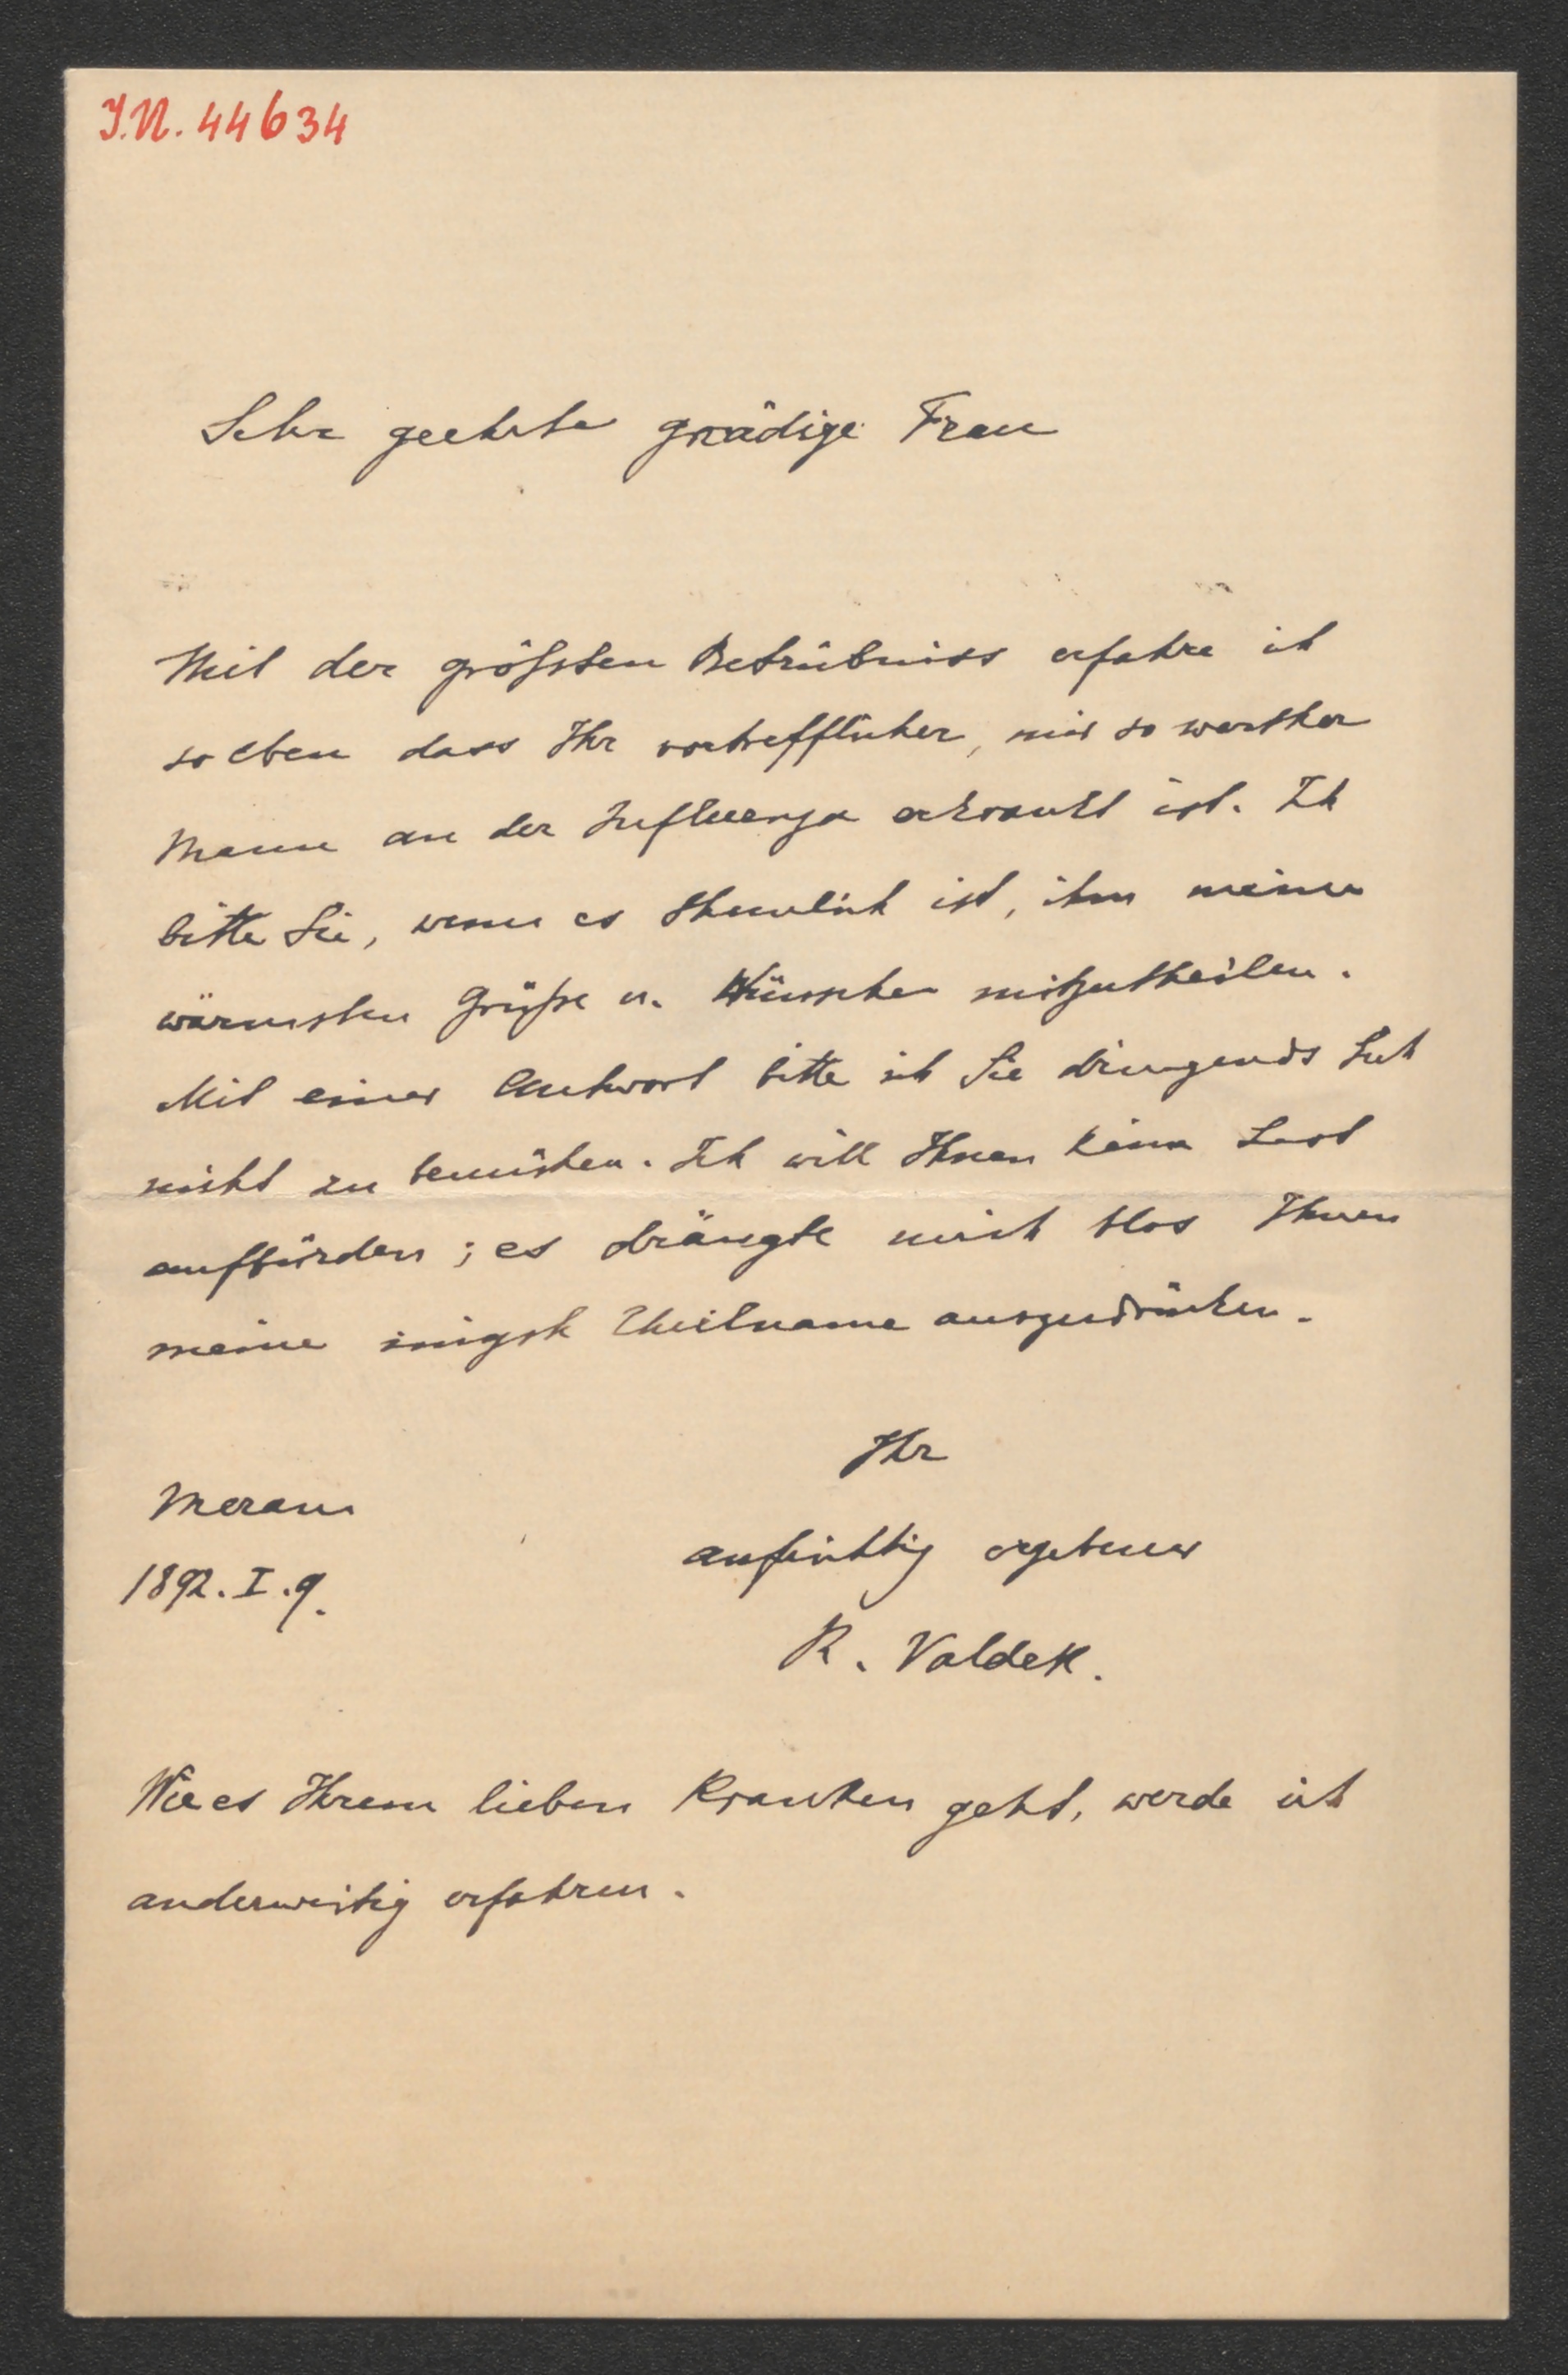 I.N. 44634
Sehr geehrte gnädige Frau
Mit der größten Betrübniss erfahre ich
so eben dass Ihr vortrefflicher, mir so werther
Mann an der Influenza erkrankt ist. Ich
bitte Sie, wenn es thunlich ist, ihm meine
wärmsten Grüße u. Wünsche mitzutheilen.
Mit einer Antwort bitte ich Sie dringends Sich
nicht zu bemühen. Ich will Ihnen keine Last
aufbürden; es drängte mich blos Ihnen
meine inigste Theilname auszudrücken.
Ihr
Meran
aufrichtig ergebener
1892. I. 9.
R. Valdek.
Wie es Ihrem lieben Kranken geht, werde ich
anderweitig erfahren.